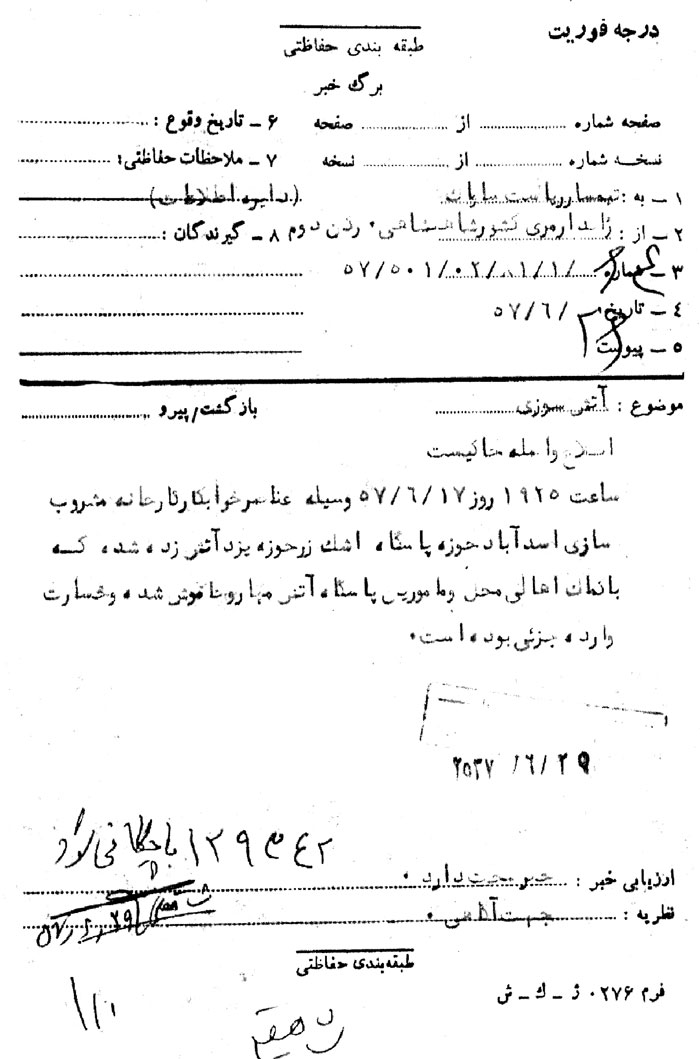 درجه فوریت
طبقه بندی حفاظتی
برگ خبر
صفحه شماره ............ از ............ صفحه
۶ ـ تاریخ وقوع :
نسخه شماره ............ از ............ نسخه
۷ ـ ملاحظات حفاظتی :
۱ ـ به : تیمسار ریاست ساواک (دایره اطلاعات)
۲ ـ از : ژاندارمری کشور شاهنشاهی. رکن دوم
۸ ـ گیرندگان :
۳ ـ شماره ۵۷/۵۰۱/۰۲/
۴ ـ تاریخ ۵۷/۶/
۵ ـ پیوست
موضوع : آتش سوزی
بازگشت/پیرو
اطلاع واصله حاکیست
ساعت ۱۹۲۵ روز ۵۷/۶/۱۷ وسیله عناصر خرابکار کارخانه مشروب
سازی اسدآباد حوزه پاسگاه اشک زر حوزه یزد آتش زده شده که
با کمک اهالی محل و مامورین پاسگاه آتش مهار و خاموش شده و خسارت
وارده جزئی بوده است.
۲۵۳۷ /۶/۲۹
۱۲۹۳۴۲ بایگانی شود
ارزیابی خبر : خبر صحت دارد.
نظریه : جهت آگاهی.
طبقه‌بندی حفاظتی
فرم ۰۲۷۶ ژ ـ ک ـ ش